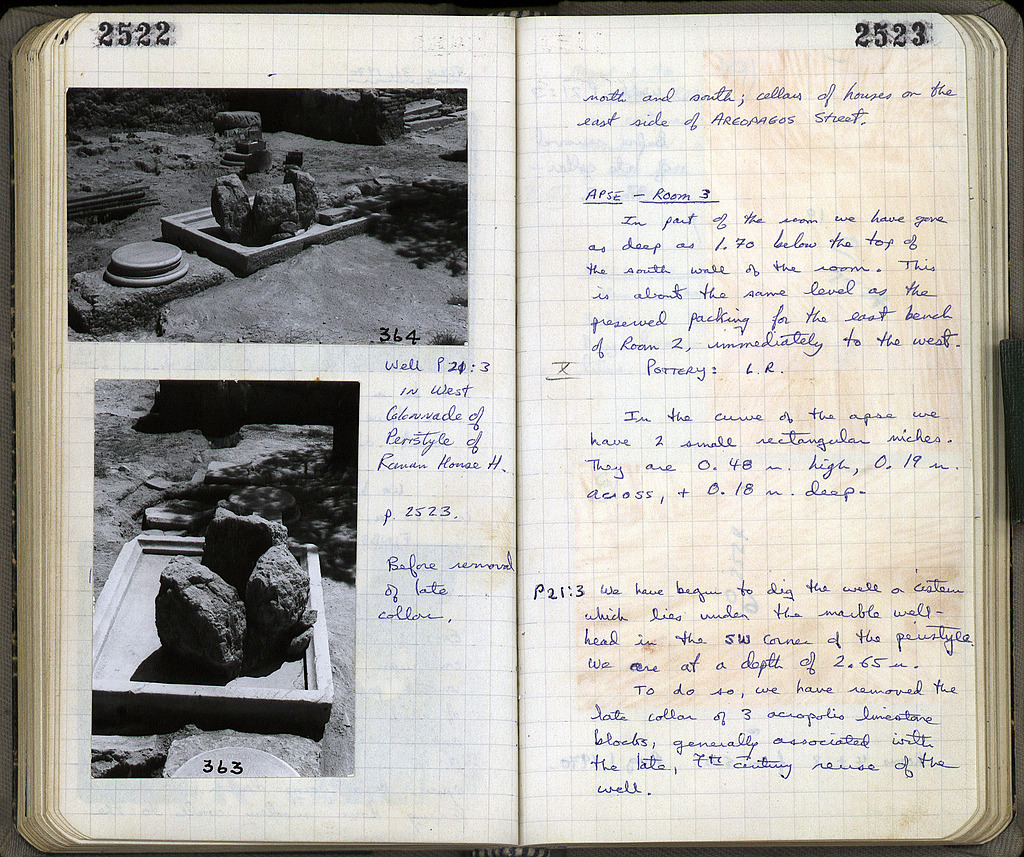 2522
364
Well P21:3
in West
Colonnade of
Peristyle of
Roman House H.
p. 2523.
Before removal
of late
collar.
363
2523
north and south; cellars of houses on the
east side of AREOPAGOS Street.
APSE - Room 3
In part of the room we have gone
as deep as 1.70 below the top of
the south wall of the room. This
is about the same level as the
preserved packing for the east bench
of Room 2, immediately to the west.
X
POTTERY: L.R.
In the curve of the apse we
have 2 small rectangular niches.
They are 0.48 m. high, 0.19 m.
across, + 0.18 m. deep.
P21:3 We have begun to dig the well or cistern
which lies under the marble well-
head in the SW corner of the peristyle.
We are at a depth of 2.65 m.
To do so, we have removed the
late collar of 3 acropolis limestone
blocks, generally associated with
the late, 7th century reuse of the
well.